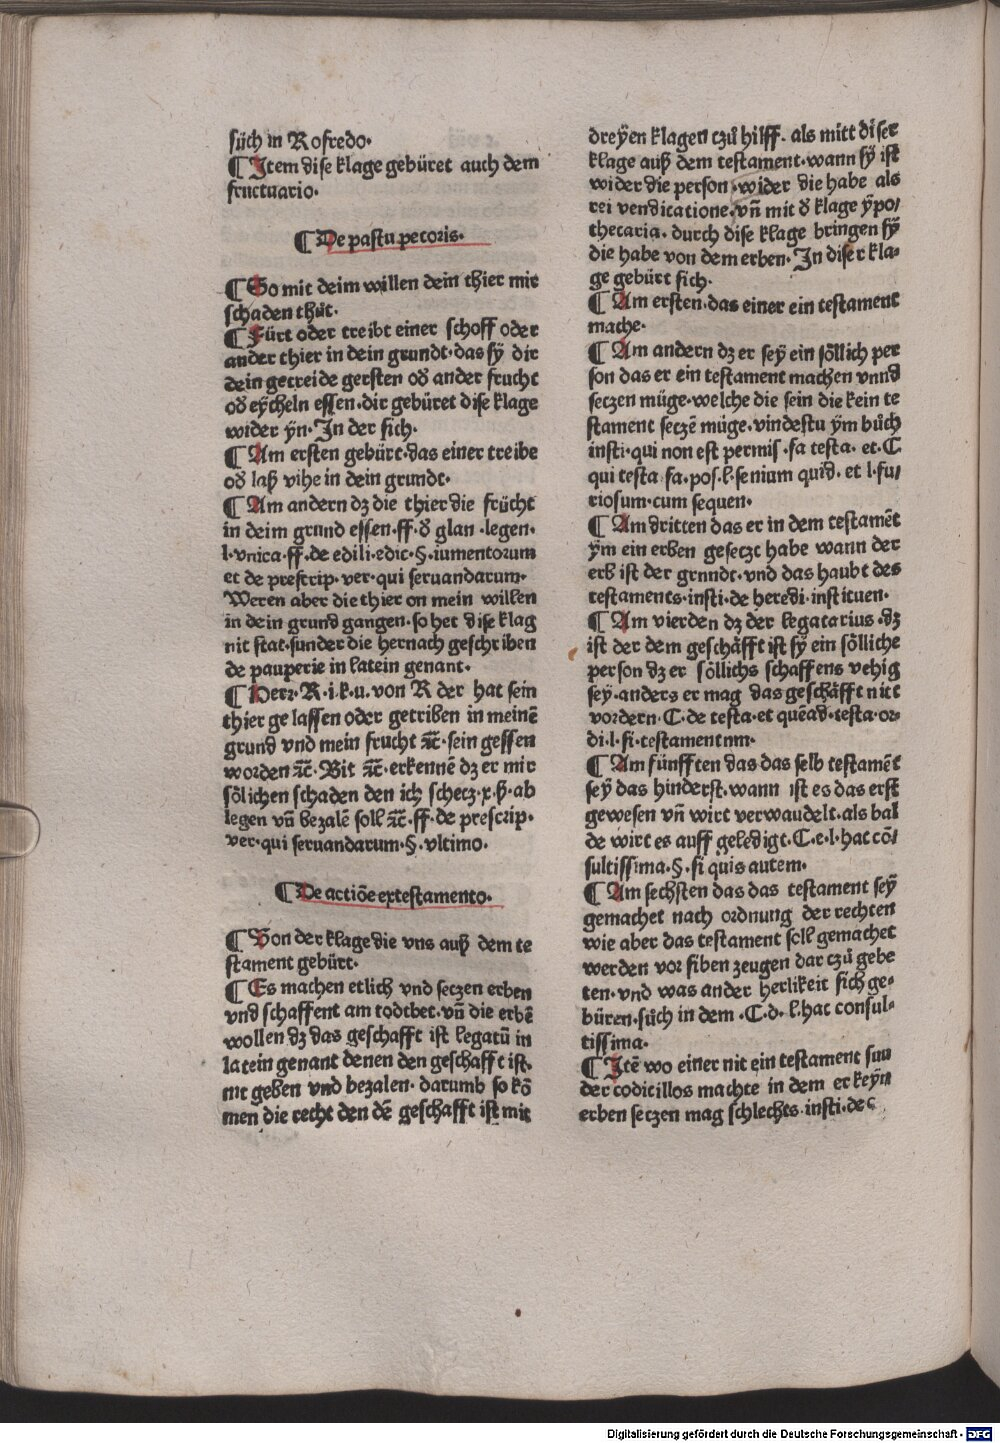 süch in Rofredo.
¶ Item dise klage gebüret auch dem
fructuario.
¶ De pastu pecoris.
¶ So mit deim willen dein thier mir
schaden thůt.
¶ Fürt oder treibt einer schoff oder
ander thier in dein grundt. das sÿ dir
dein getreide gersten oď ander frucht
oď eÿcheln essen. dir gebüret dise klage
wider ÿn. In der sich.
¶ Am ersten gebürt. das einer treibe
oď laß vihe in dein grundt.
¶ Am andern dz die thier die frücht
in deim grund essen. ff. ď glan. legen.
l. vnica. ff. de edili. edic. §. iumentorum
et de prescrip. ver. qui seruandarum.
Weren aber die thier on mein willen
in dein grund gangen. so het dise klag
nit stat. sunder die hernach geschriben
de pauperie in latein genant.
¶ Herr. R. i. k. u. von R der hat sein
thier gelassen oder getriben in meinē
grund vnd mein frucht ⁊c̄. sein gessen
worden ⁊c̄. Bit ⁊c̄. erkennē dz er mir
sölichen schaden den ich schecz. x. ß. ab
legen vñ bezalē soll ⁊c̄. ff. de prescrip.
ver. qui seruandarum. §. vltimo.
¶ De actiōe extestamento.
¶ Von der klage die vns auß dem te
stament gebürt.
¶ Es machen etlich vnd seczen erben
vnd schaffent am todtbet. vñ die erbē
wollen dz das geschafft ist legatū in
latein genant denen den geschafft ist.
nit geben vnd bezalen. darumb so kō
men die recht den dē geschafft ist mit
dreÿen klagen czů hilff. als mitt diser
klage auß dem testament. wann sÿ ist
wider die person. wider die habe als
rei vendicatione. vñ mit ď klage ÿpo/
thecaria. durch dise klage bringen sÿ
die habe von dem erben. In diser kla-
ge gebürt sich.
¶ Am ersten. das einer ein testament
mache.
¶ Am andern dz er seÿ ein söllich per
son das er ein testament machen vnnd
seczen müge. welche die sein die kein te
stament seczē müge. vindestu ÿm bůch
insti. qui non est permis. fa testa. et. C
qui testa. fa. pos. l. senium quid. et l. fu/
riosum. cum sequen.
¶ Am dritten das er in dem testamēt
ÿm ein erben gesetzt habe wann der
erb ist der grnndt. vnd das haubt des
testaments. insti. de heredi. instituen.
¶ Am vierden dz der legatarius. dz
ist der dem geschäfft ist sÿ ein sölliche
person dz er söllichs schaffens vehig
seÿ. anders er mag das geschäfft nitt
vordern. C. de testa. et quēad. testa. or-
di. l. si. testamentnm.
¶ Am fünfften das das selb testamēt
seÿ das hinderst. wann ist es das erst
gewesen vñ wirt verwaudelt. als bal
de wirt es auff geledigt. C. e. l. hac cō/
sultissima. §. si quis autem.
¶ Am sechsten das das testament seÿ
gemachet nach ordnung der rechten
wie aber das testament soll gemachet
werden vor siben zeugen dar czů gebe
ten. vnd was ander herlikeit sich ge-
büren. sůch in dem. C. d. l. hac consul-
tissima.
¶ Itē wo einer nit ein testament sun
der codicillos machte in dem er keÿn
erben seczen mag schlechts. insti. de c
Digitalisierung gefördert durch die Deutsche Forschungsgemeinschaft - DFG